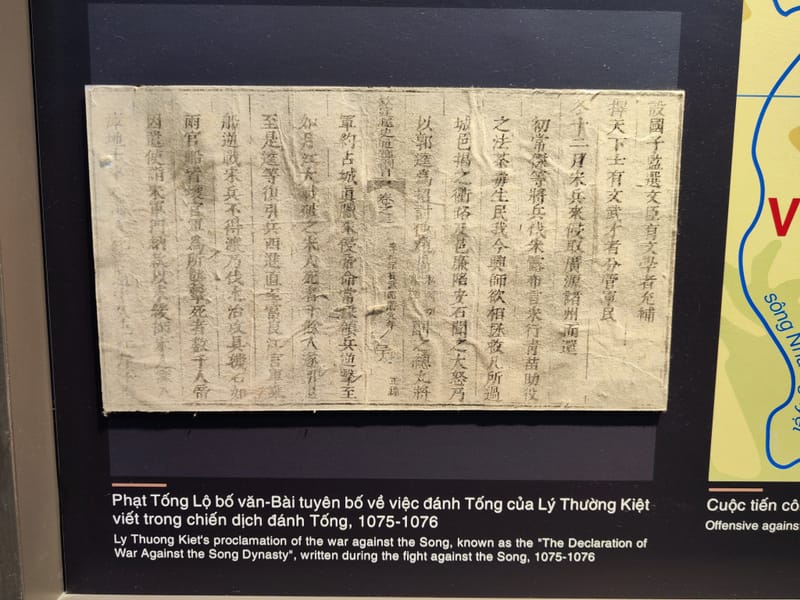 設國子監選文臣有文學者充補
擇天下士有文武才者分管軍民
冬十二月宋兵來侵取廣源諸州而還
初常傑等將兵伐宋露布言宋行青苗助役
之法荼毒生民我今興師欲相拯救凡所過
城邑揭之衢路及邕廉陷安石聞之大怒乃
以郭逵爲招討使副之總九將
卷之三
軍約占城真臘來侵帝命常傑領兵逆擊至
如月江大破之宋人死者千餘人
至是逵等復引兵西進直至富良江官軍乘
船逆戰宋兵不得渡乃伐木治攻具礮石如
雨官船皆壞官軍爲所擊死者數千人帝
因遣使詣宋軍門納款以求緩師
Phạt Tống Lộ bố văn-Bài tuyên bố về việc đánh Tống của Lý Thường Kiệt
viết trong chiến dịch đánh Tống, 1075-1076
Ly Thuong Kiet's proclamation of the war against the Song, known as the "The Declaration of
War Against the Song Dynasty", written during the fight against the Song, 1075-1076
V
sông Nh
Cuộc tiến cô
Offensive agains